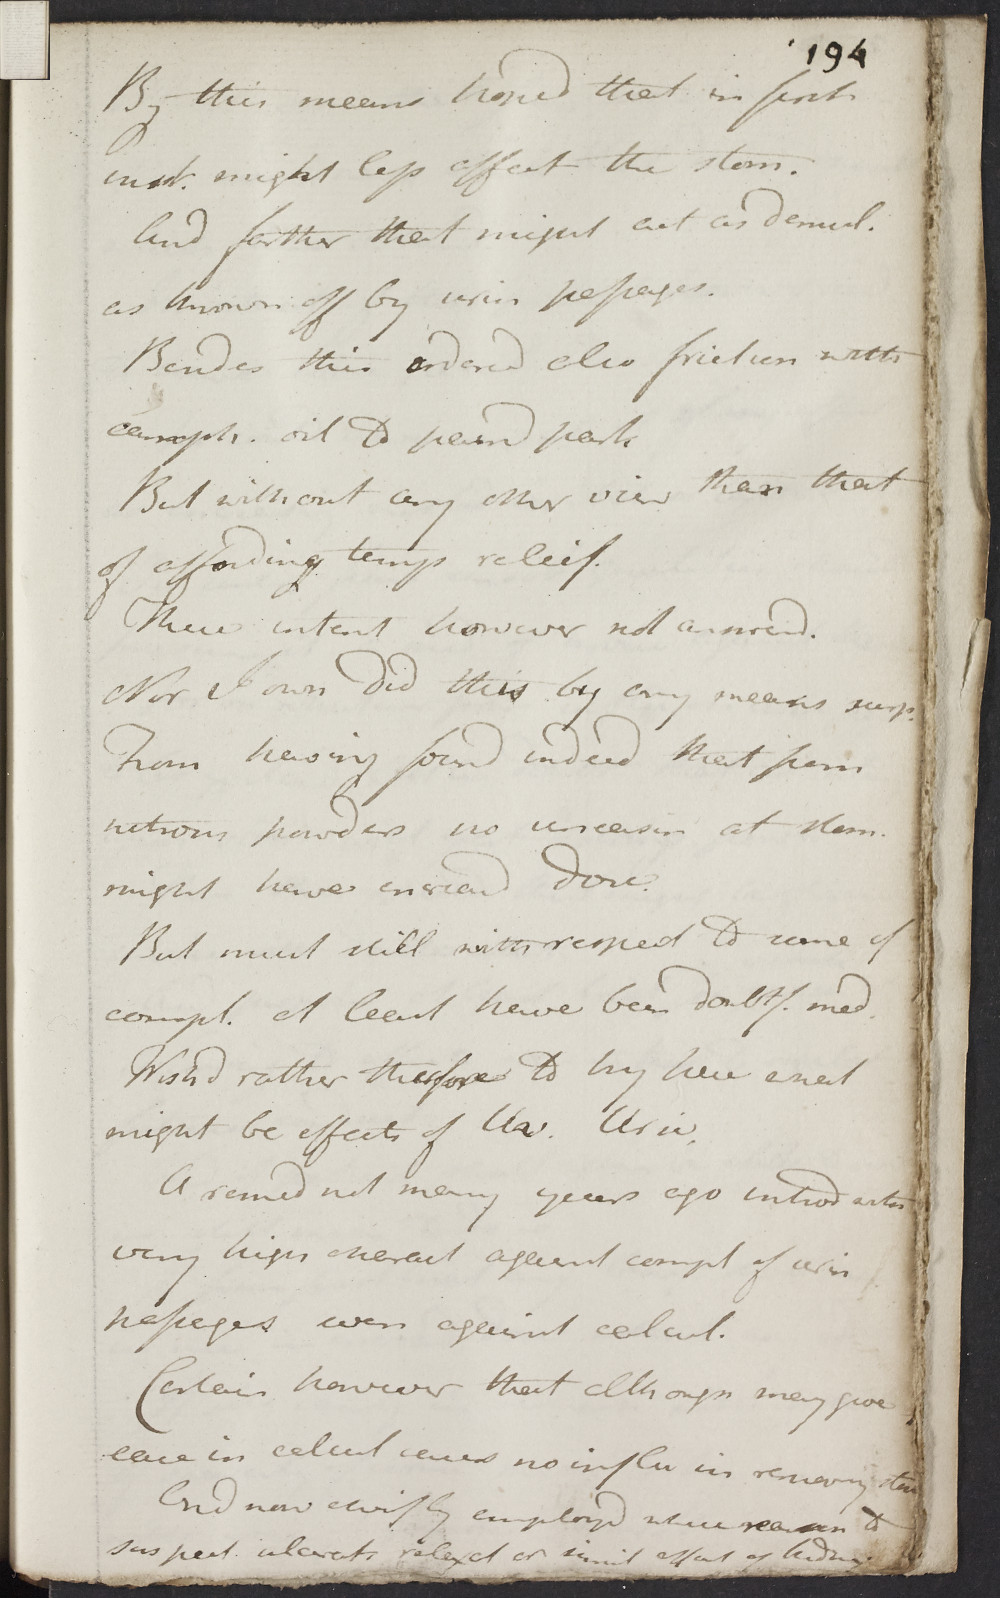 194
By this means hoped that in first
inst. might less affect the stom.
And farther that might act as demul.
as thrown off by urin passages.
Besides this ordered also friction with
camph. oil to pain'd part
But without any other view than that
of affording temp releif.
These intent however not answerd.
Nor I own did this by any means surp.
From having found indeed that from
nitrous powders no uneasin at stom.
might have Done.
But must still with respect to some of
compl. at least have been doubtf. med.
Wishd rather therefore to try here what
might be effects of Uv. Ursi.
A remed not many years ago introd with
very high charact against compl of urin
passages even against calcul.
Certain however that although may give
ease in calcul cases no influ in removing stone
And now chiefly employd where reason to
suspect ulcerat relaxat or simil affect of kidney